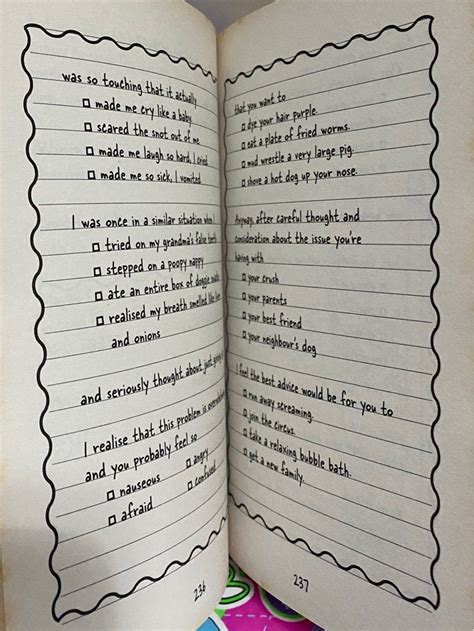 was so touching that it actually
□ made me cry like a baby.
□ scared the snot out of me
□ made me laugh so hard, I cried
□ made me so sick, I vomited.
I was once in a similar situation when I
□ tried on my grandma's false teeth
□ stepped on a poopy nappy
□ ate an entire box of doggie
□ realised my breath smelled like
and onions
and seriously thought about just giving
I realise that this problem is
and you probably feel so
□ nauseous □ angry
□ afraid □ confused
236
that you want to
□ dye your hair purple.
□ eat a plate of fried worms.
□ mud wrestle a very large pig.
□ shove a hot dog up your nose.
Anyway, after careful thought and
consideration about the issue you're
having with
□ your crush
□ your parents
□ your best friend
□ your neighbour's dog
I feel the best advice would be for you to
□ run away screaming.
□ join the circus.
□ take a relaxing bubble bath.
□ get a new family.
237